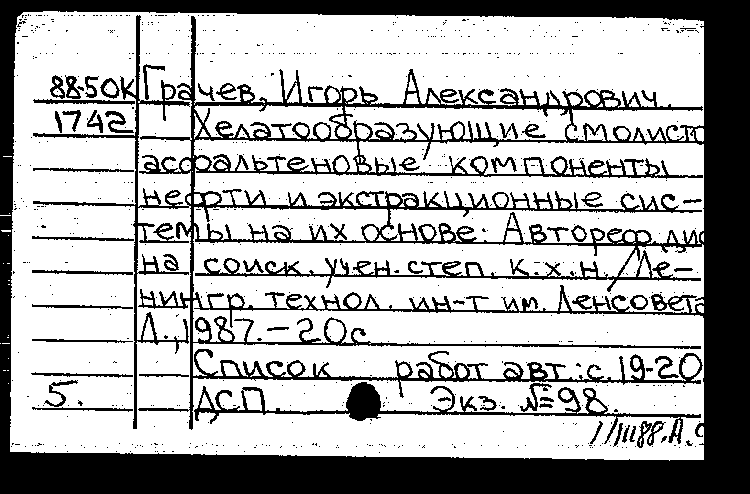 88-50К Грачев, Игорь Александрович.
1742 Хелатообразующие смолисто
асфальтеновые компоненты
нефти и экстракционные сис-
темы на их основе: Автореф. дис
на соиск. учен. степ. к.х.н. /Ле-
нингр. технол. ин-т им. Ленсовета
Л., 1987. – 20с
Список работ авт.: с. 19-20
5. ДСП. Экз. №98.